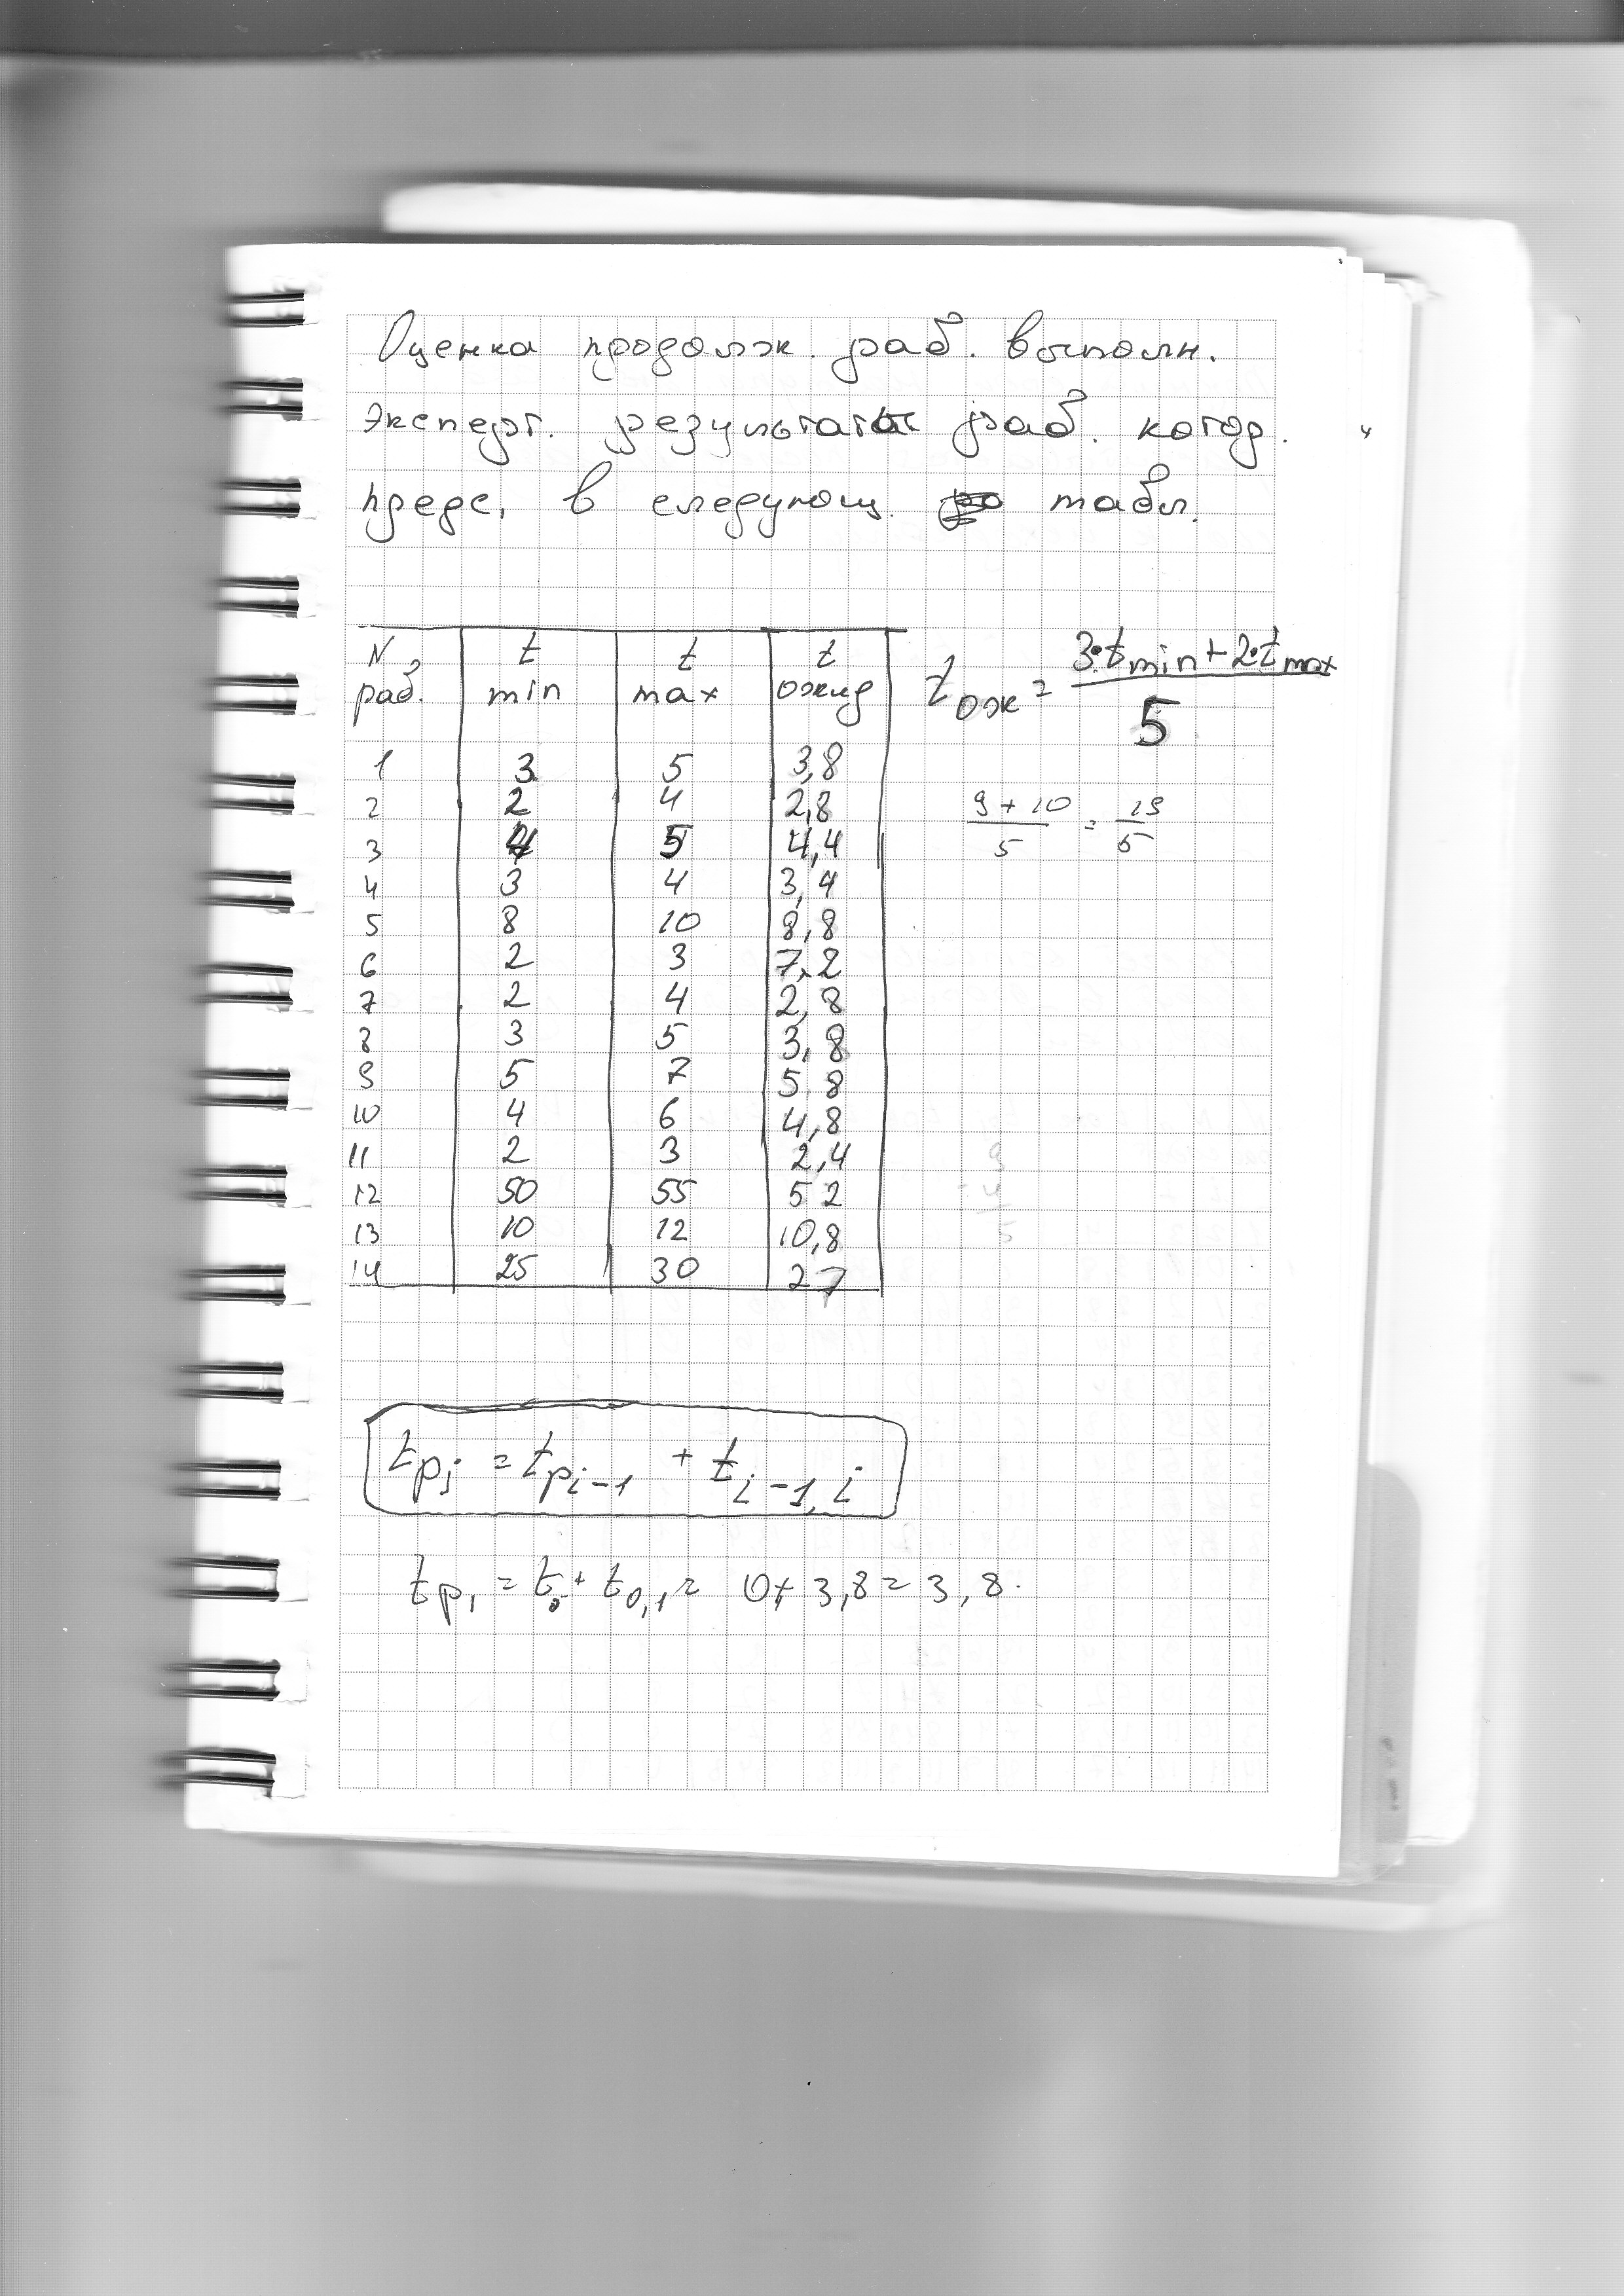 Оценка продолж. раб. выполн.
эксперт. результаты раб. котор.
предс, в следующ. табл.
N раб. t min t max t ожид
tож = 3·tmin + 2·tmax / 5
1 3 5 3,8
2 2 4 2,8
9 + 10 / 5 = 19 / 5
3 4 5 4,4
4 3 4 3,4
5 8 10 8,8
6 2 3 7,2
7 2 4 2,8
8 3 5 3,8
9 5 7 5 8
10 4 6 4,8
11 2 3 2,4
12 50 55 52
13 10 12 10,8
14 25 30 27
tpj = tpi-1 + ti-1, i
tp1 = t0 + t0,1 = 0 + 3,8 = 3,8.